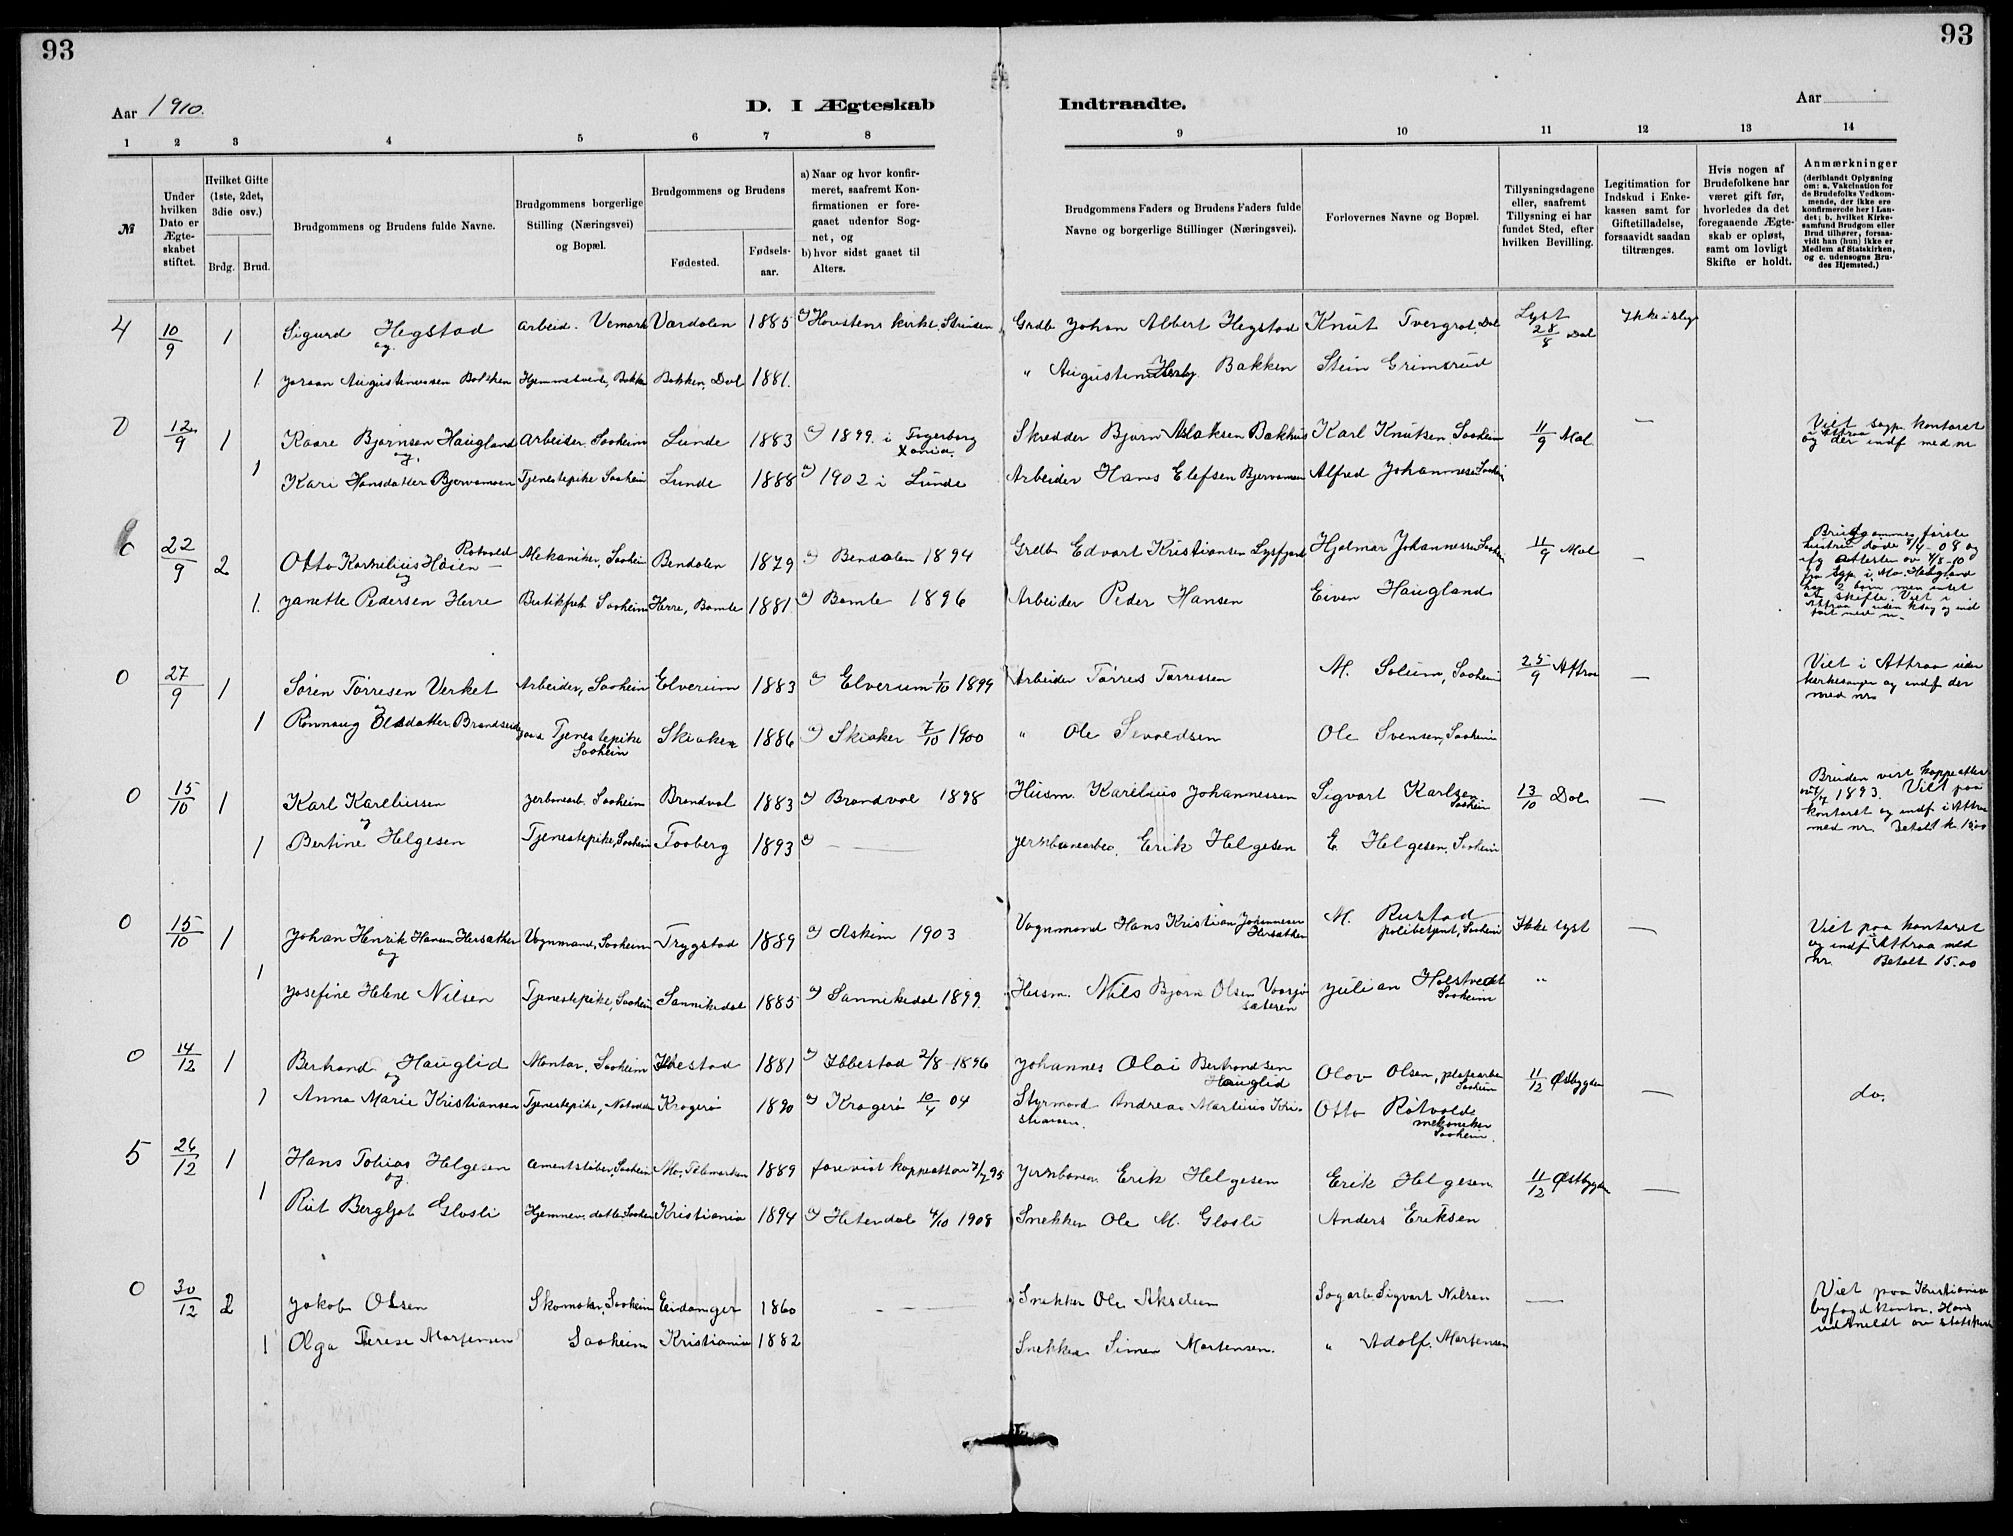 93
93
Aar 1910.
D. I Ægteskab
Indtraadte.
Aar
1 2 3 4 5 6 7 8 9 10 11 12 13 14
№
Under hvilken Dato er Ægteskabet stiftet.
Hvilket Gifte (1ste, 2det, 3die osv.)
Brdg. Brud.
Brudgommens og Brudens fulde Navne.
Brudgommens borgerlige Stilling (Næringsvei) og Bopæl.
Brudgommens og Brudens
Fødested.
Fødsels-aar.
a) Naar og hvor konfirmeret, saafremt Konfirmationen er foregaaet udenfor Sognet, og
b) hvor sidst gaaet til Alters.
Brudgommens Faders og Brudens Faders fulde Navne og borgerlige Stillinger (Næringsvei).
Forlovernes Navne og Bopæl.
Tillysningsdagene eller, saafremt Tillysning ei har fundet Sted, efter hvilken Bevilling.
Legitimation for Indskud i Enkekassen samt for Giftetilladelse, forsaavidt saadan tiltrænges.
Hvis nogen af Brudefolkene har været gift før, hvorledes da det foregaaende Ægteskab er opløst, samt om lovligt Skifte er holdt.
Anmærkninger
(deriblandt Oplysning om: a. Vakcination for de Brudefolks Vedkommende, der ikke ere konfirmerede her i Landet; b. hvilket Kirkesamfund Brudgom eller Brud tilhører, forsaavidt han (hun) ikke er Medlem af Statskirken, og c. udensogns Brudes Hjemsted.)
4 10/9 1 Sigurd Hegstad Arbeid. Vemork Værdalen 1885 a) Hovstens kirke, Strinden Grdb Johan Albert Hegstad Knut Tvergrot, Dal Lyst 28/8 Dal
og
1 Joraan Augustinussen Bakken Bakken, Dal 1881. " Augustinus Bakken Stein Grimsrud
0 12/9 1 Kaare Bjørnsen Haugland Arbeider. Saaheim Lunde 1883 a) 1899 i Fagerborg Xania. Skredder Bjørn Aslaksen Bakhus Karl Knutsen Saaheim 11/9 Mæl — Viet sogp. kontoret og Attraa der indf med nr
og
1 Kari Hansdatter Bjervamoen Tjenestepike Saaheim Lunde 1888 a) 1902 i Lunde Arbeider Hans Elefsen Bjervamoen Alfred Johannesen Saaheim
6 22/9 2 Otto Kornelius Haien Rotvold Mekaniker, Saaheim 1879 a) 1894 Grdb Edvart Kristiansen Hjalmar Johannessen Saaheim 11/9 Mæl — Brudgommens første hustru døde 8/4-08 og
og
1. Janette Pedersen Herre Saaheim Herre, Bamle 1881 a) Bamle 1896 Arbeider Peder Hansen Eiven Haugland
0 27/9 1 Søren Tørresen Verket Arbeider, Saaheim Elverum 1883 a) Elverum 1/10 1899 Arbeider Tørres Tørressen M. Solum, Saaheim 25/9 Attraa — Viet i Attraa uden kirkesanger og indf der med nr
og
1 Rønnaug Olsdatter Tjenestepike Saaheim Skiaker 1886 a) Skiaker 7/10 1900 " Ole Sevaldsen Ole Svensen, Saaheim
0 15/10 1 Karl Kareliussen Jerbanearb. Saaheim Brandval 1883 a) Brandval 1898 Husm. Karelius Johannessen Sigvart Karlsen Saaheim 13/10 Dal — Bruden vist koppeattest 1893. Viet paa kontoret og indf i Attraa med nr. Betalt k. 15.00
og
1 Bertine Helgesen Tjenestepike, Saaheim Faaberg 1893 a) — Jernbanearbeid. Erik Helgesen E. Helgesen, Saaheim
0 15/10 1 Johan Henrik Hansen Hersæther Vognmand, Saaheim Trygstad 1889 a) Askim 1903 Vognmand Hans Kristian Johannesen Hersæther M. Rustad politibetjent, Saaheim Ikke lyst — Viet paa kontoret og indf i Attraa med nr. Betalt 15.00
og
1 Josefine Helene Nilsen Tjenestepike, Saaheim Sannikedal 1885 a) Sannikedal 1899. Husm. Nils Bjørn Olsen Julian Holstvedt Saaheim "
0 14/12 1 Bertrand Hauglid Montør, Saaheim Ibbestad 1881 a) Ibbestad 2/8-1896 Johannes Olai Bertrandsen Hauglid Olav Olsen, Saaheim 11/12 Østbygden — do.
og
1 Anna Marie Kristiansen Tjenestepike, Notodden Kragerø 1890 a) Kragerø 10/4 04 Styrmand Andreas Martinus Kristiansen. Otto Røtvold, mekaniker Saaheim.
5 26/12 1 Hans Tobias Helgesen Cementstøber, Saaheim Mo, Telemarken 1889 forevist koppeatt av 7/7 95 Jernbanea. Erik Helgesen Erik Helgesen. 11/12 Østbygden —
og
1 Rut Bergljot Glosli Hjemmev. datter Saaheim Kristiania 1894 a) Hitendal 4/10 1908 Snekker Ole M. Glosli Anders Eriksen
0 30/12 2 Jakob Olsen Skomaker, Saaheim Eidanger 1860 — Snekker Ole Akselsen Sagarb. Sigvart Nilsen — Viet paa Kristiania byfogdkontor. Hans utmeldt av statskirken
1 Olga Therese Martensen Saaheim Kristiania 1882 Snekker Simen Martensen. " Adolf Martensen